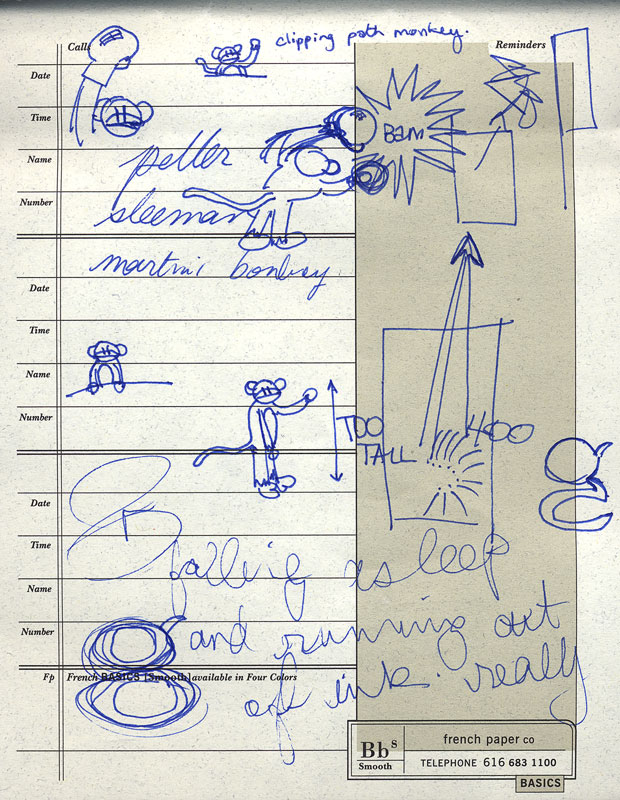 clipping path monkey.
Calls
Reminders
Date
Time
BAM
Name
peller
Number
sleeman
martini bombay
Date
Time
Name
Number
TOO
TALL
400
g
Date
Time
falling asleep
Name
Number
and running out
Fp French BASICS (Smooth) available in Four Colors
of ink. really
Bbs
Smooth
french paper co
TELEPHONE 616 683 1100
BASICS